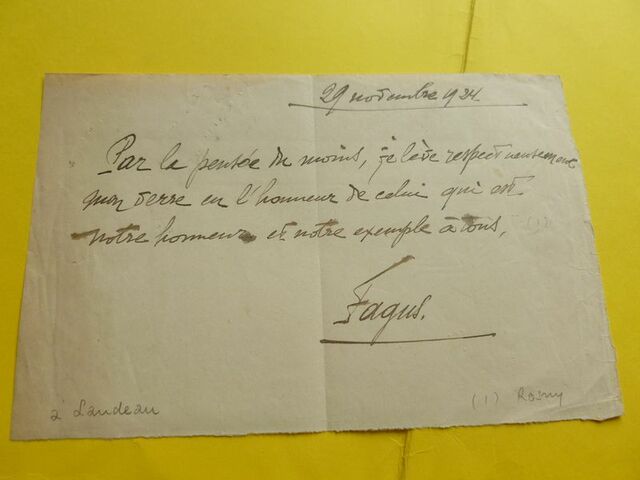 29 novembre 1924.
Par la pensée du moins, je lève respectueusement
mon verre en l'honneur de celui qui est
notre honneur et notre exemple à tous, (1)
Fagus.
à Landeau
(1) Rosny